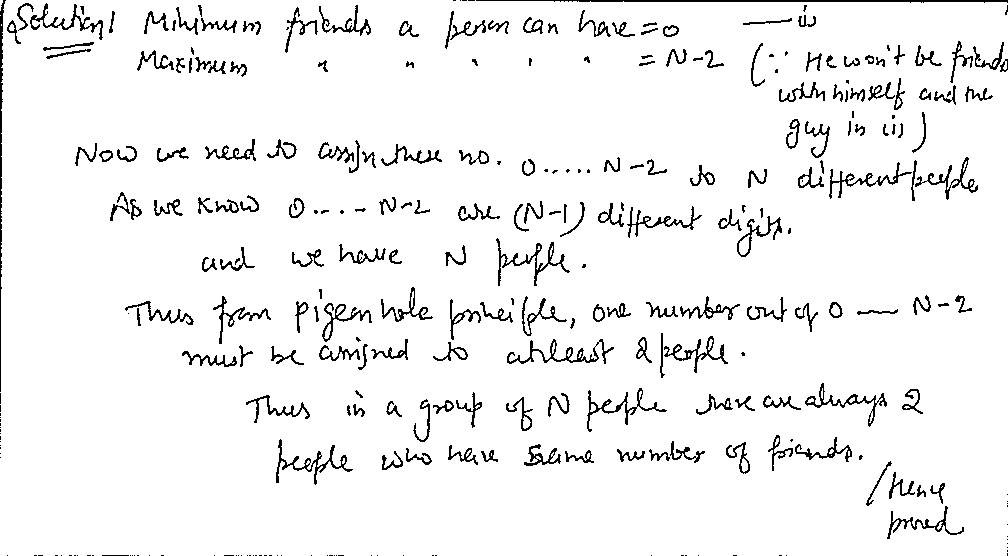 Solution! Minimum friends a person can have = 0 — (i)
Maximum " " " " " = N-2 (∵ He won't be friends
with himself and the
guy in (i))
Now we need to assign these no. 0.....N-2 to N different people
As we know 0....N-2 are (N-1) different digits.
and we have N people.
Thus from pigeon hole principle, one number out of 0 — N-2
must be assigned to atleast 2 people.
Thus in a group of N people there are always 2
people who have same number of friends.
/Hence
proved